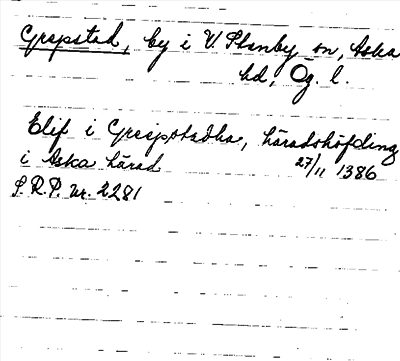 Grepstad, by i V. Stenby sn, Aska
hd, Ög. l.
Elif i Grespstadha, häradshöfding
i Aska härad 27/11 1386
S.R.P. nr. 2281